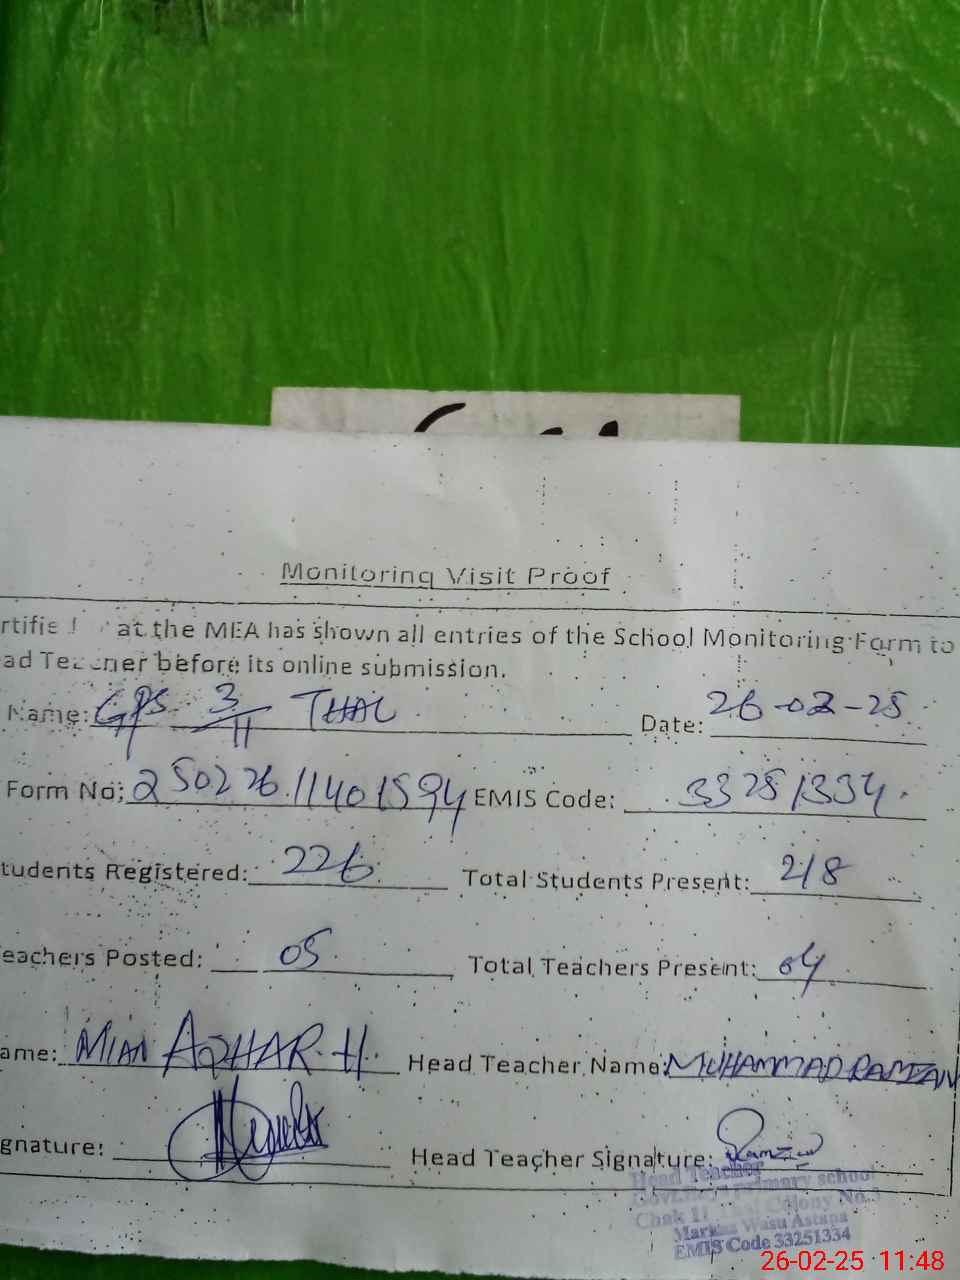 Monitoring Visit Proof
at the MEA has shown all entries of the School Monitoring Form to
before its online submission.
Name: GPS 3/11 THAL Date: 26-02-25
Form No: 250226.11401594 EMIS Code: 33251334.
tudents Registered: 226 Total Students Present: 218
eachers Posted: 05 Total Teachers Present: 04
ame: MIAN AZHAR.H. Head Teacher Name: MUHAMMAD RAMZAN
gnature: Head Teacher Signature: Ramzan
Head Teacher
primary school
Chak 11 Thal Colony No.3
Markaz Wasu Astana
EMIS Code 33251334
26-02-25 11:48